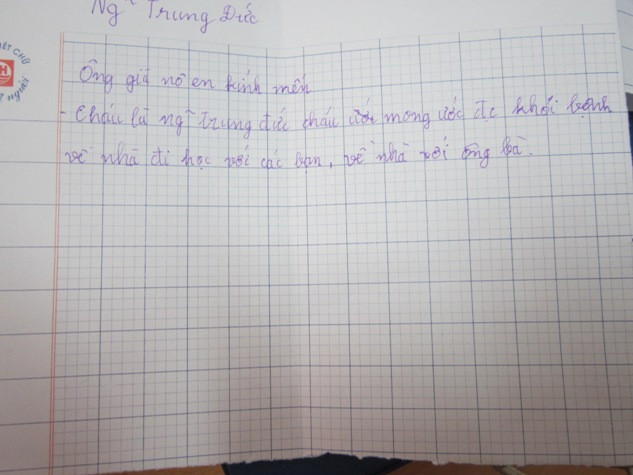 Ng~ Trung Đức
ẾT CHỮ
NGƯỜI
Ông già nô en kính mến
- Cháu là ng~ trung đức cháu ước mong ước đc khỏi bệnh
về nhà đi học với các bạn, về nhà với ông bà.